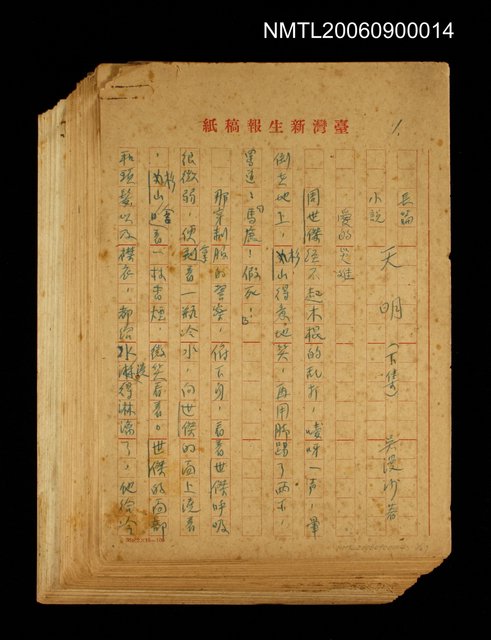 NMTL20060900014
紙稿報生新灣臺
1.
長篇小說 天明（下集） 吳漫沙著
愛的
周世傑經不起木棍的乱打，噯呀一声，暈
倒在地上，杉山得意地笑，再用脚踢了两下，
罵道：「馬鹿！假死！」
那穿制服的警察，俯下身，看着世傑呼吸
很微弱，便拿着一瓶冷水，向世傑的面上澆着
，杉山含着一枝香烟，微笑看着。世傑的面部
和頭髮以及襟衣，都給水淋得淋漓了，他